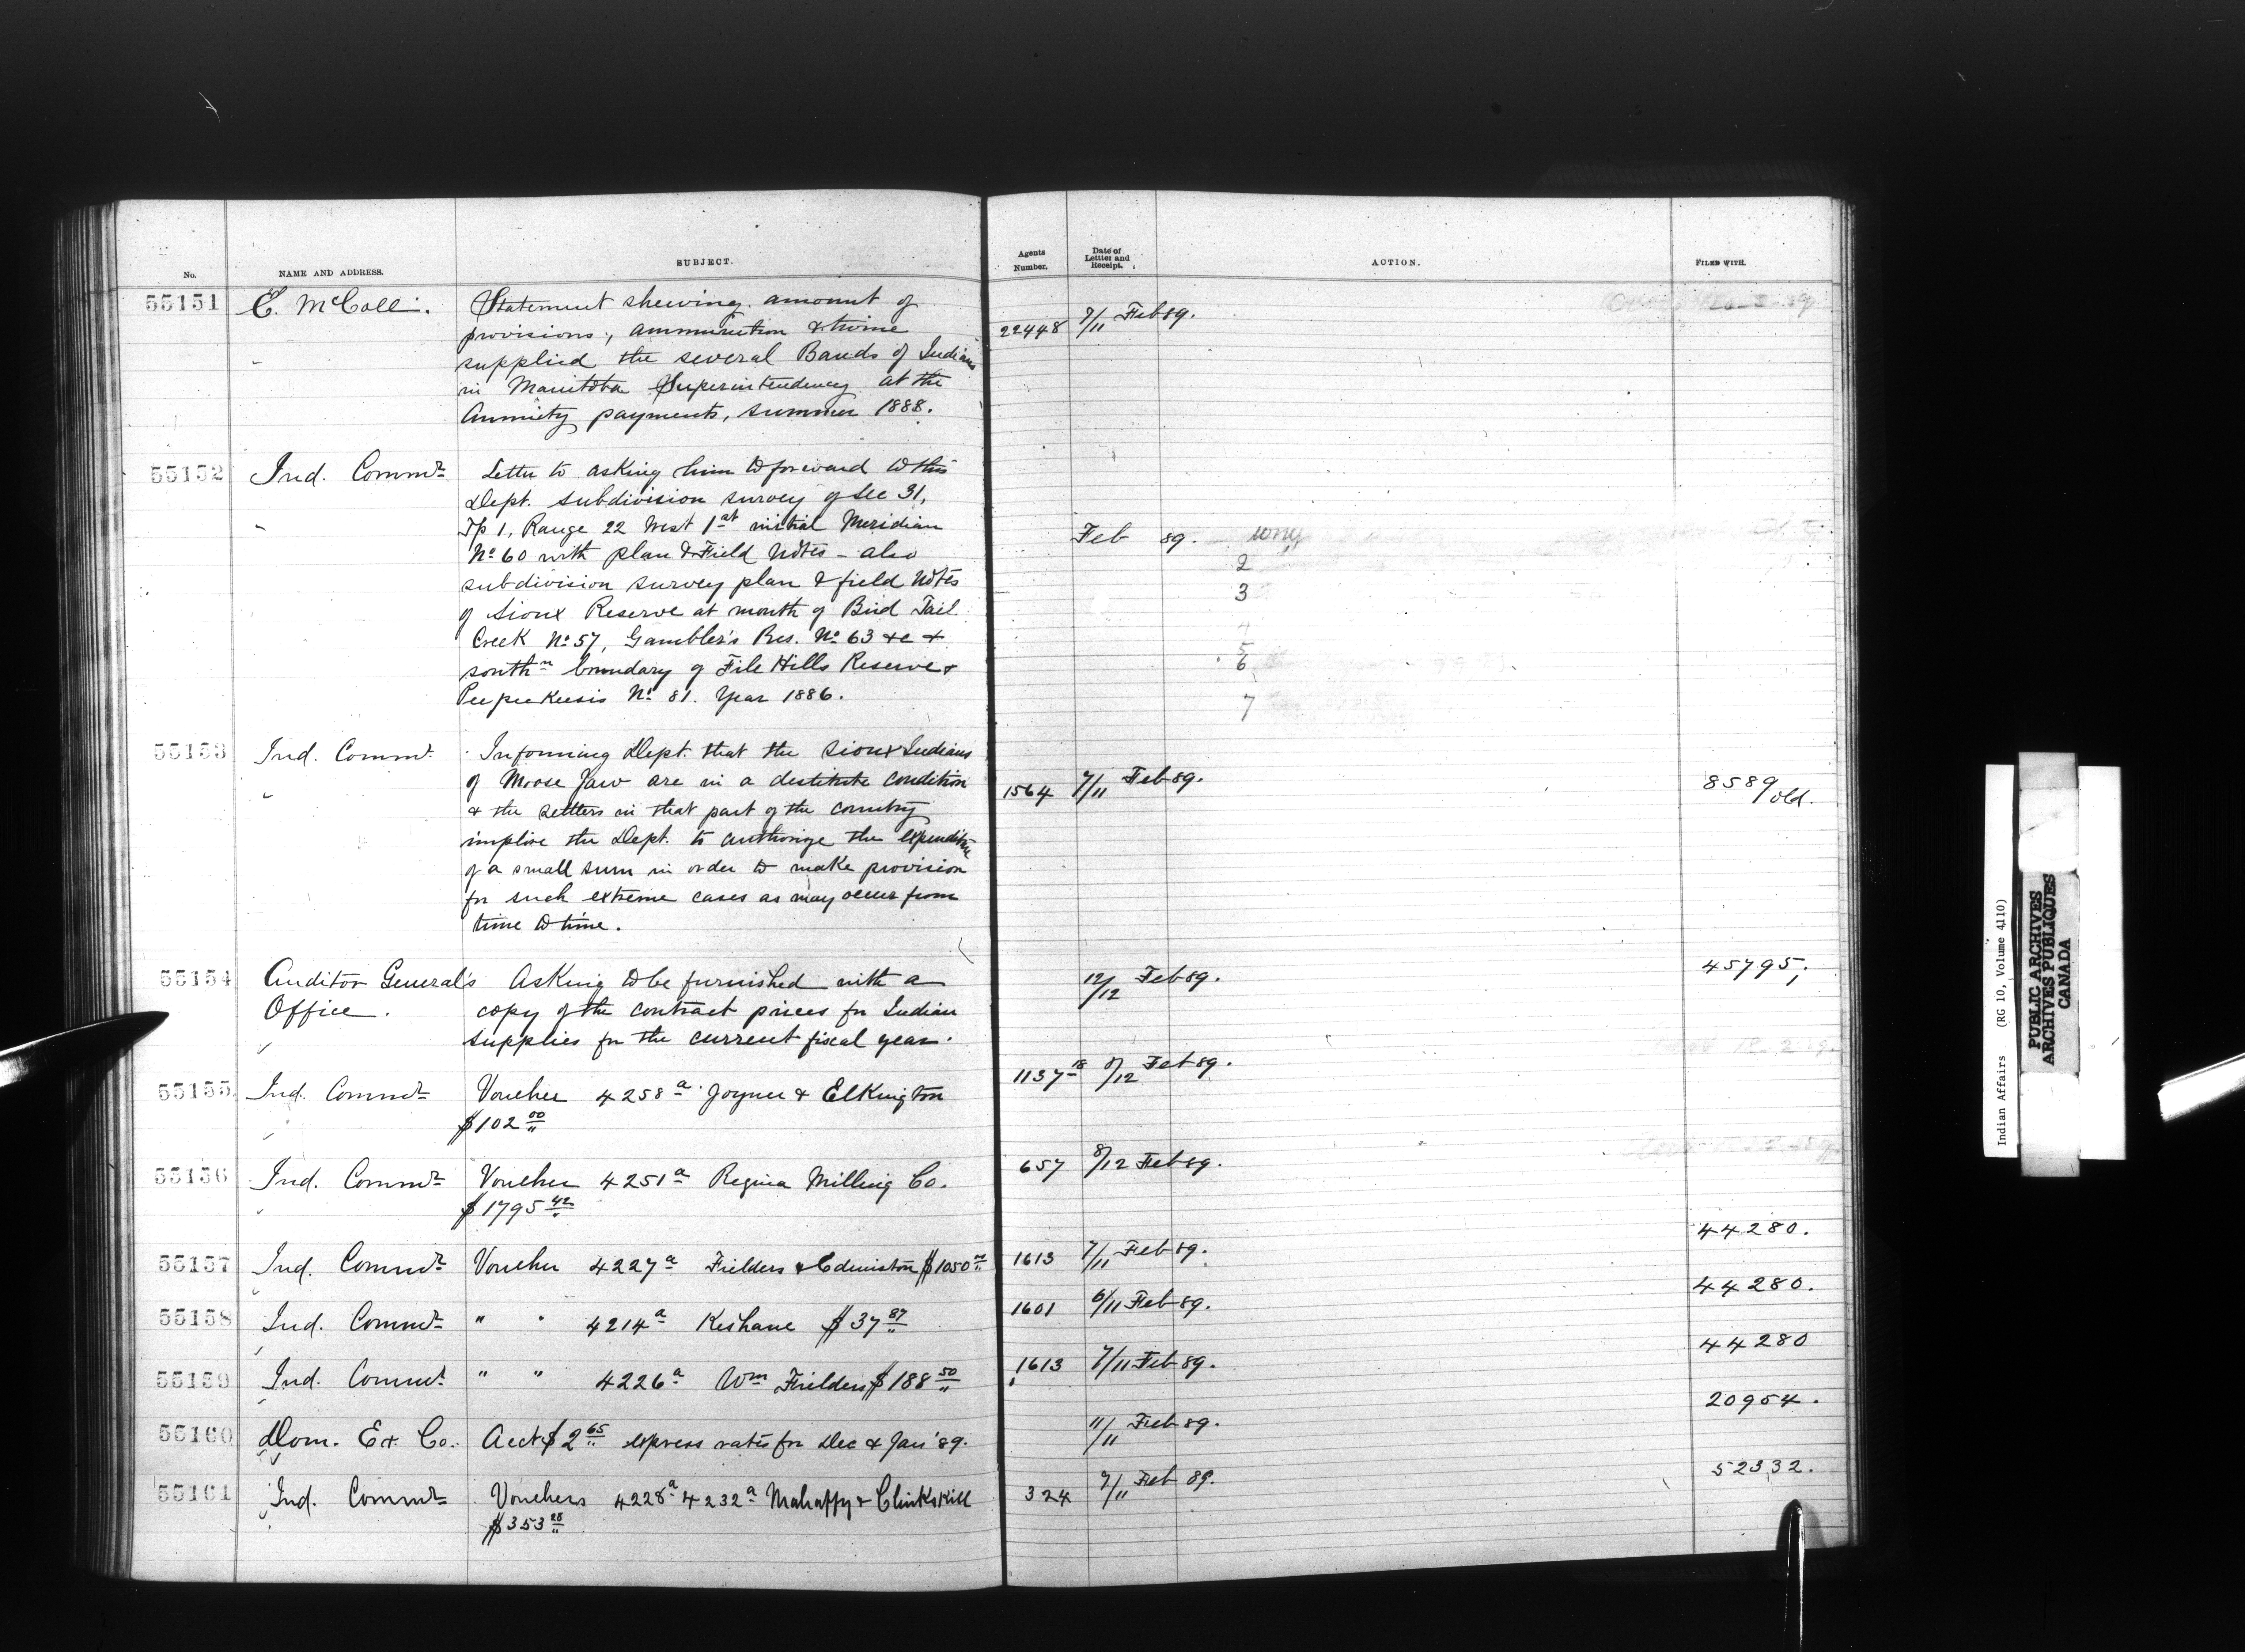 No. NAME AND ADDRESS. SUBJECT. Agents Number. Date of Letter and Receipt. ACTION. FILED WITH.
55151 E. McColl. Statement shewing amount of
provisions, ammunition & twine 22448 7/11 Feb 89.
supplied the several Bands of Indians
in Manitoba Superintendency at the
Annuity payments, summer 1888.
55152 Ind. Commr Letter to asking him to forward to this
Dept. subdivision survey of Sec 31,
Tp 1, Range 22 West 1st initial Meridian Feb 89.
No 60 with plan & Field Notes - also 2
subdivision survey plan & field Notes 3
of Sioux Reserve at mouth of Bird Tail 4
Creek No 57, Gambler's Res. No 63 &c & 5
southn boundary of File Hills Reserve & 6
Peepeekeesis No 81. Year 1886. 7
55153 Ind. Commr. Informing Dept. that the Sioux Indians
of Moose Jaw are in a destitute condition 1564 7/11 Feb 89. 8589 old.
& the settlers in that part of the country
implore the Dept. to authorize the expenditure
of a small sum in order to make provision
for such extreme cases as may occur from
time to time.
55154 Auditor General's Asking to be furnished with a 12/12 Feb 89. 45795,
Office. copy of the contract prices for Indian
supplies for the current fiscal year.
55155 Ind. Commr Voucher 4258a Joyner & Elkington 1137-18 8/12 Feb 89.
$102 00
55156 Ind. Commr Voucher 4251a Regina Milling Co. 657 8/12 Feb 89.
$1795 42
55157 Ind. Commr Voucher 4227a Fielders & Edmiston $1050 1613 7/11 Feb 89. 44280.
55158 Ind. Commr " " 4214a Keshane $37 87 1601 6/11 Feb 89. 44280.
55159 Ind. Commr. " " 4226a Wm Fielders $188 50 1613 7/11 Feb 89. 44280
55160 Dom. Ex. Co. Acct $2 65 express rates for Dec & Jan' 89. 11/11 Feb 89. 20954.
55161 Ind. Commr Vouchers 4228a 4232a Mahaffy & Clinkskill 324 7/11 Feb 89. 52332.
$353 28
Indian Affairs (RG 10, Volume 4110)
PUBLIC ARCHIVES
ARCHIVES PUBLIQUES
CANADA